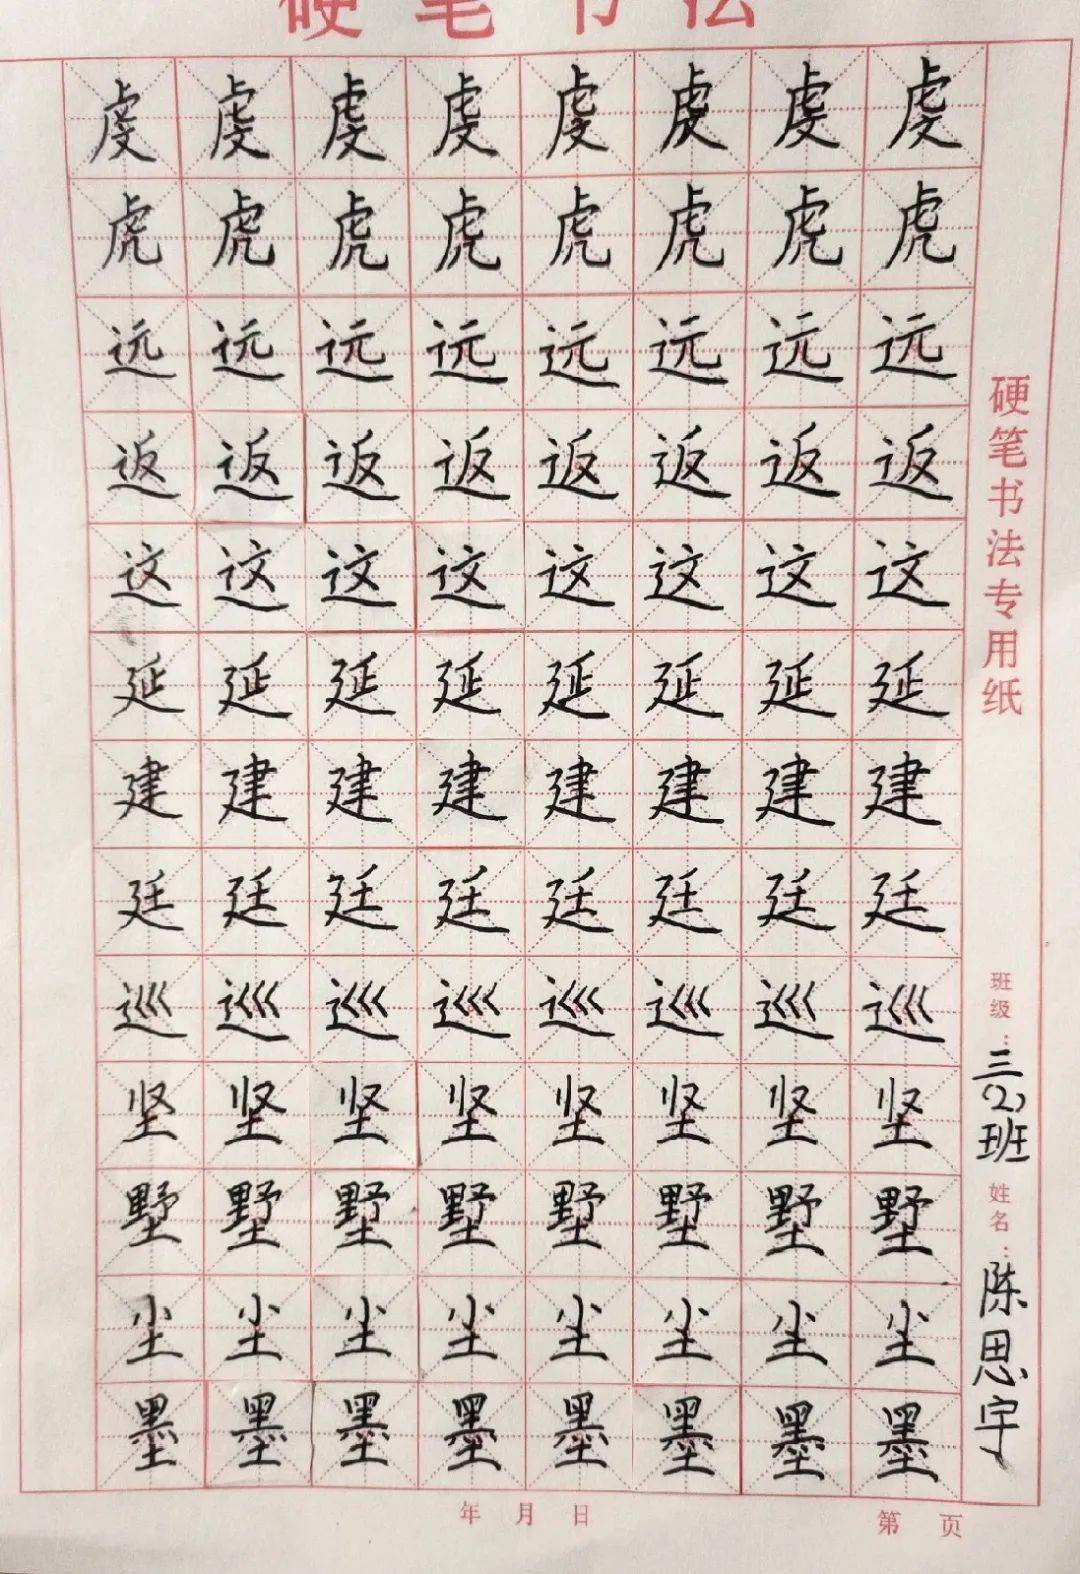 硬笔书法
虔虔虔虔虔虔虔虔
虎虎虎虎虎虎虎虎
远远远远远远远远
返返返返返返返返
这这这这这这这这
延延延延延延延延
建建建建建建建建
廷廷廷廷廷廷廷廷
巡巡巡巡巡巡巡巡
坚坚坚坚坚坚坚坚
墅墅墅墅墅墅墅墅
尘尘尘尘尘尘尘尘
墨墨墨墨墨墨墨墨
硬笔书法专用纸
班级:三(2)班
姓名:陈思宇
年 月 日
第 页